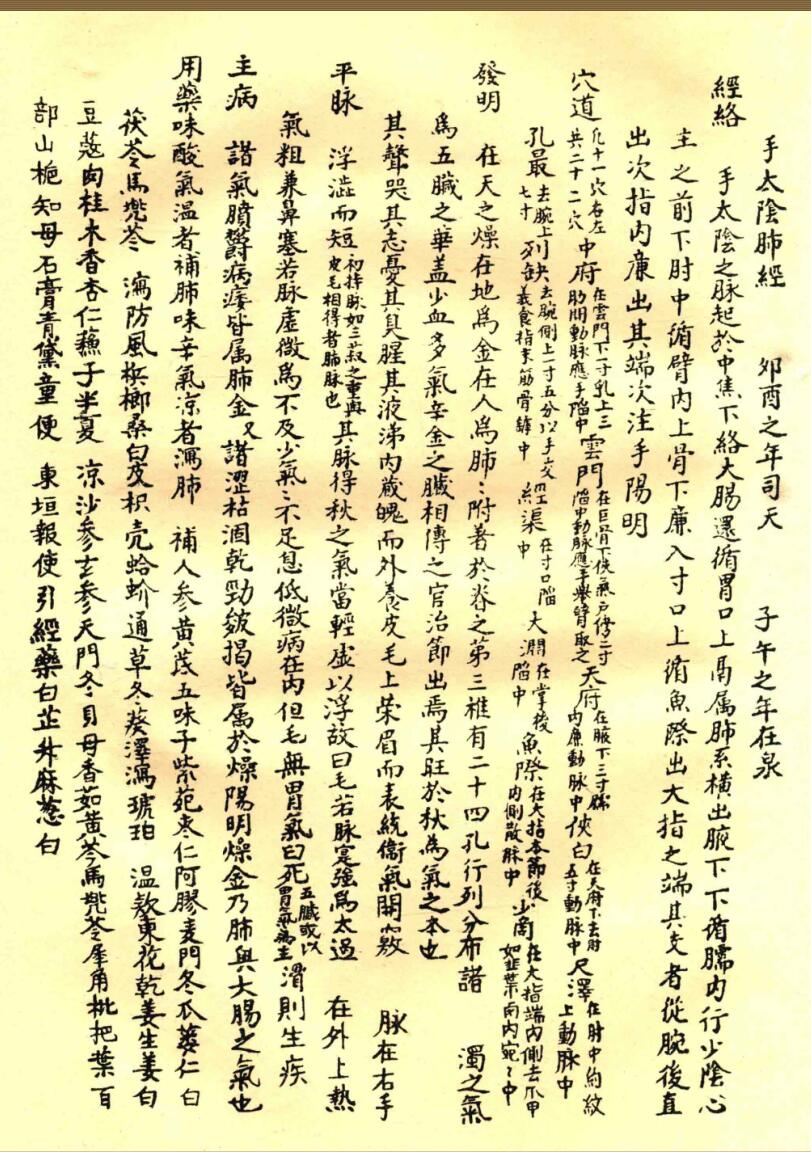 手太陰肺經 卯酉之年司天 子午之年在泉
經絡 手太陰之脉起於中焦下絡大腸還循胃口上鬲属肺系橫出腋下下循臑内行少陰心
主之前下肘中循臂内上骨下廉入寸口上循魚際出大指之端其支者從腕後直
出次指内廉出其端次注手陽明
穴道 凢十一穴右左共二十二穴 中府 在雲門下一寸乳上三肋間動脉應手陥中 雲門 在巨骨下俠氣户傍二寸陥中動脉應手舉臂取之 天府 在腋下三寸臑内廉動脉中 俠白 在天府下去肘五寸動脉中 尺澤 在肘中約紋上動脉中
孔最 去腕上七寸 列缺 去腕側上一寸五分以手交叉食指末筋骨罅中 經渠 在寸口陥中 大淵 在掌後陥中 魚際 在大指本節後内側散脉中 少商 在大指端内側去爪甲如韮葉南内宛〻中
發明 在天之燥在地爲金在人爲肺〻附著於脊之第三椎有二十四孔行列分布諸 濁之氣
爲五臓之華盖少血多氣辛金之臓相傳之官治節出焉其旺於秋為氣之本也
其聲哭其志憂其臭腥其液涕内蔵魄而外養皮毛上荣眉而表統衞氣開竅 脉在右手
平脉 浮澁而短 初持脉如三菽之重與皮毛相得者肺脉也 其脉得秋之氣當輕虛以浮故曰毛若脉寔強爲太過 在外上熱
氣粗兼鼻塞若脉虛微爲不及少氣〻不足息低微病在内但毛無胃氣曰死 五臓或以胃氣為主 滑則生疾
主病 諸氣膹欝病痿皆属肺金又諸澀枯涸乾勁皴揭皆属於燥陽明燥金乃肺與大腸之氣也
用藥味酸氣溫者補肺味辛氣凉者瀉肺 補人参黄茋五味子紫苑枣仁阿膠麦門冬瓜蔞仁白
茯苓馬兜苓 瀉防風梹榔桑白皮枳壳蛤蚧通草冬葵澤瀉琥珀 温欵東花乾姜生姜白
豆蔻肉桂木香杏仁蘓子半夏 凉沙参玄参天門冬貝母香茹黄芩馬兠苓犀角枇把葉百
部山梔知母石膏青黛童便 東垣報使引經藥白芷升麻葱白